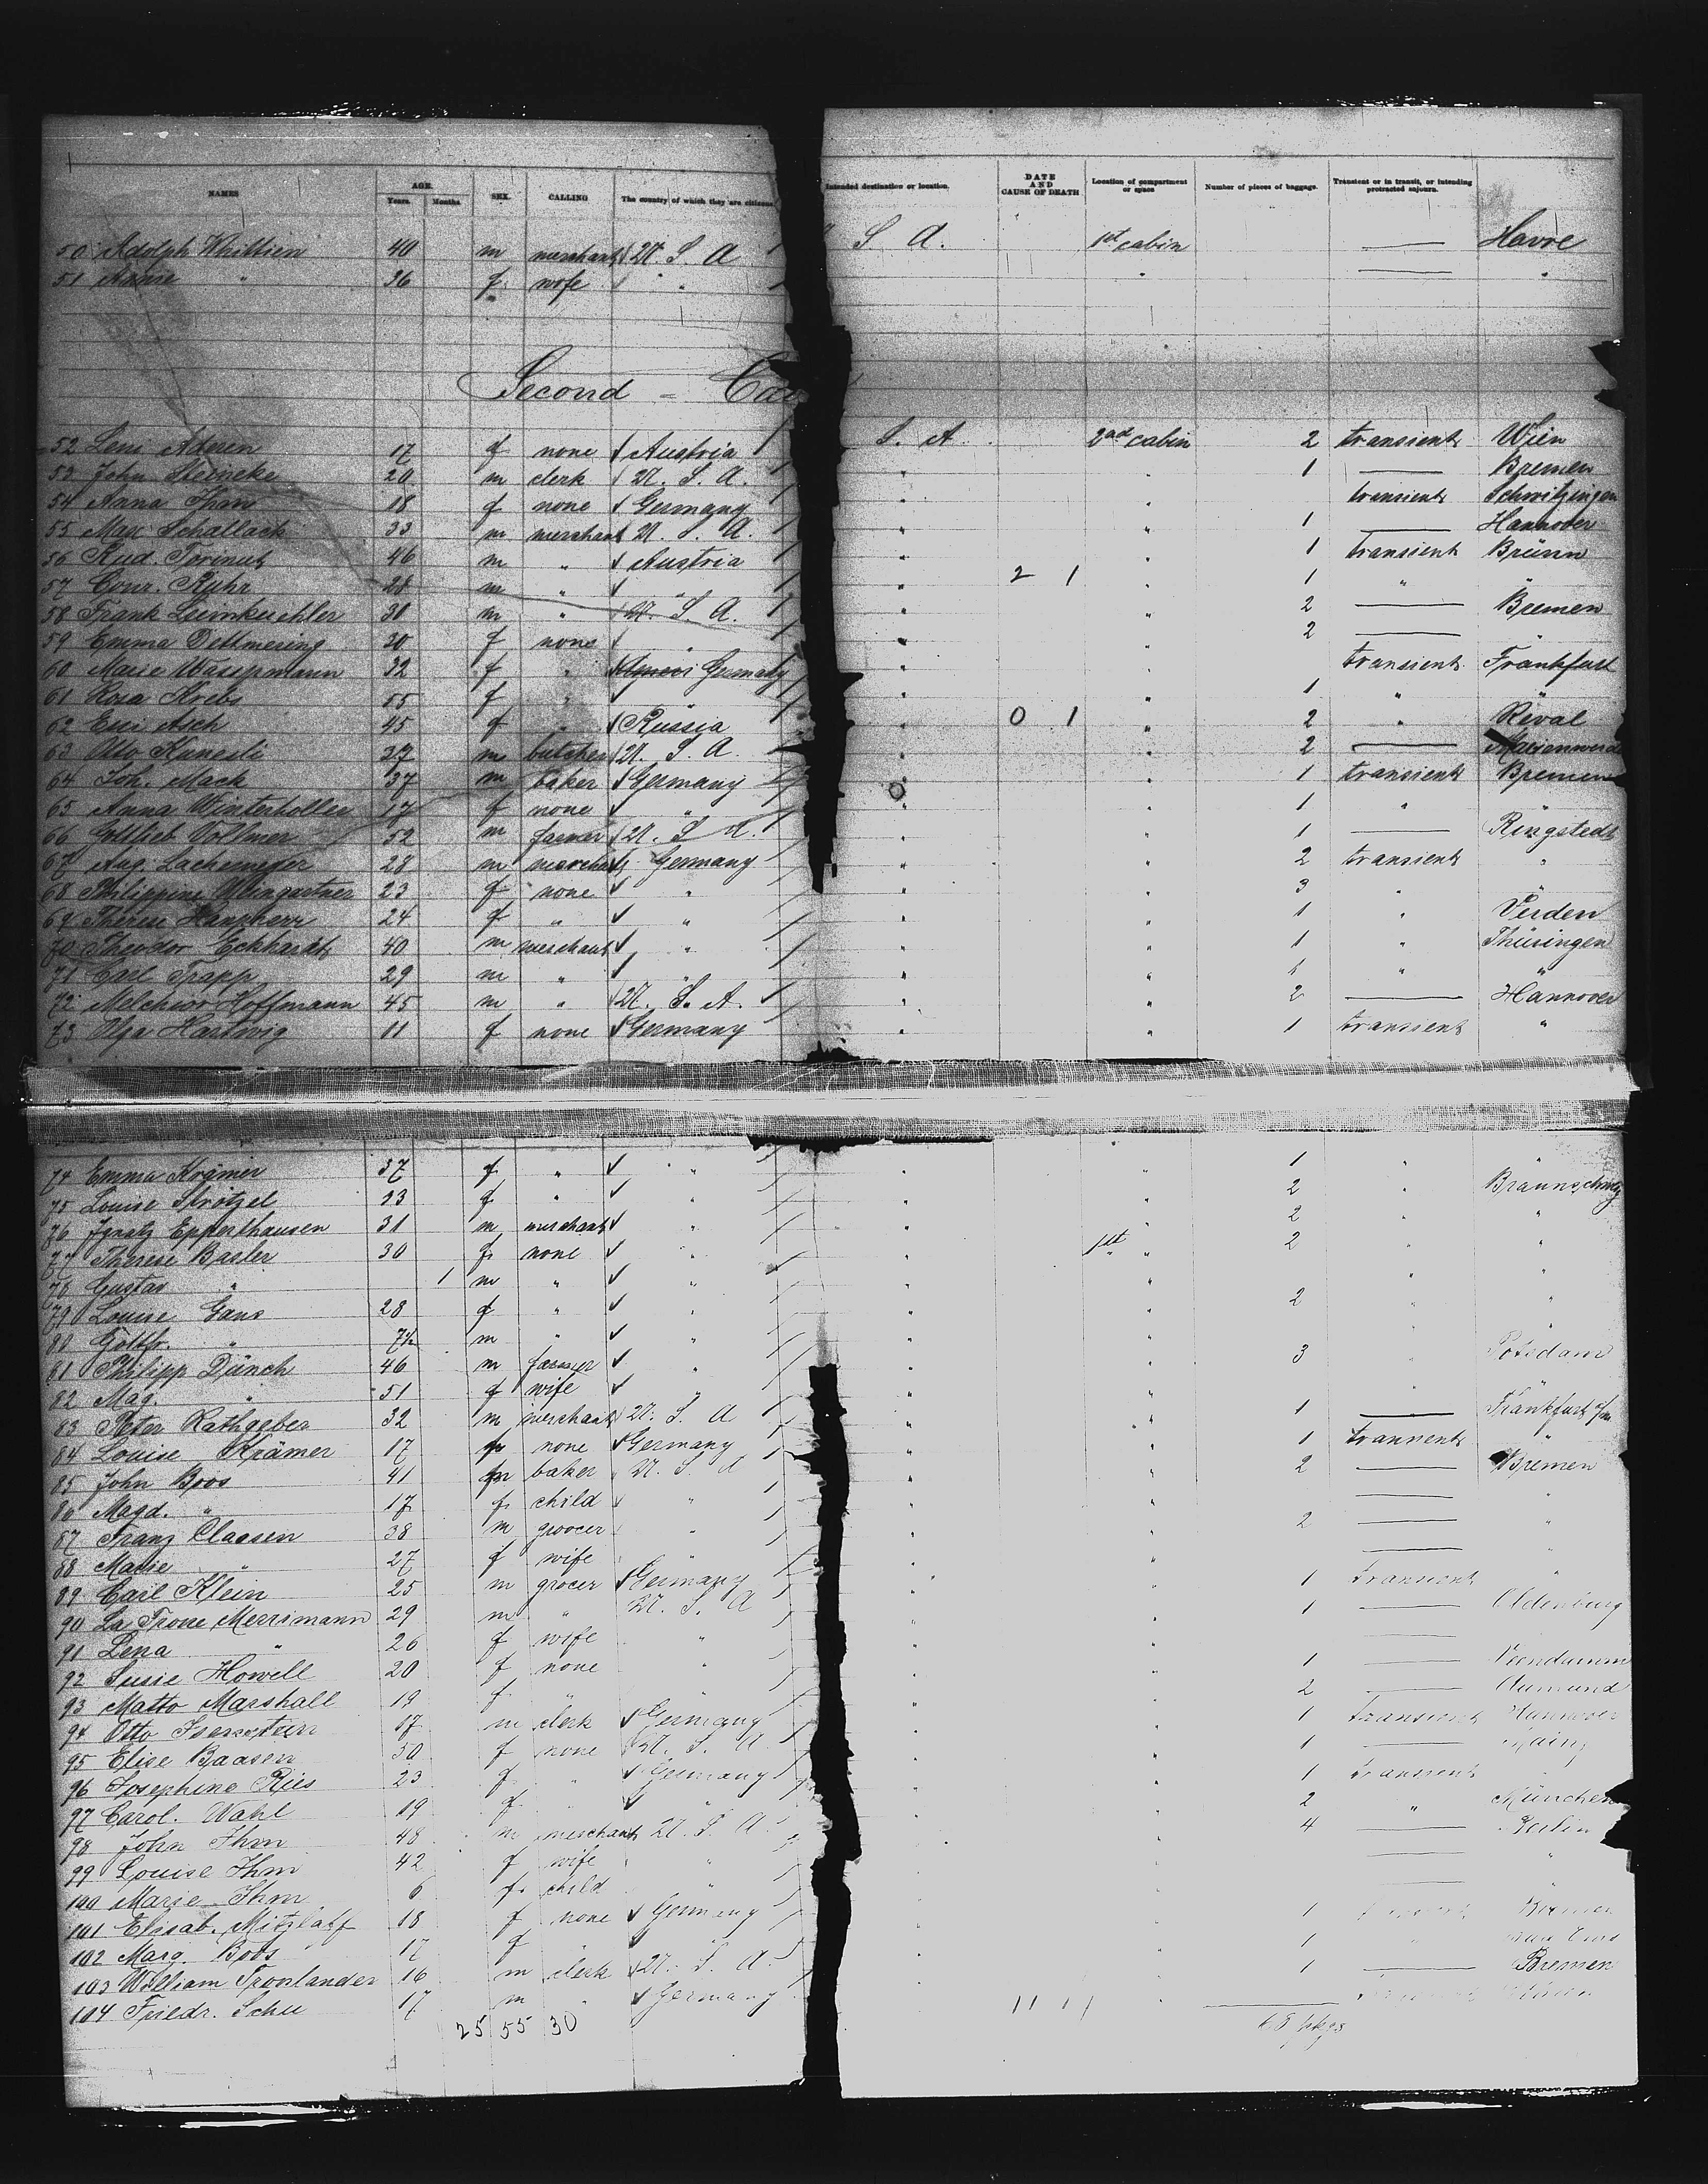 NAMES AGE. Years. Months SEX. CALLING The country of which they are citizens Intended destination or location. DATE AND CAUSE OF DEATH Location of compartment or space Number of pieces of baggage. Transient or in transit, or intending protracted sojourn.
50 Adolph Whittien 40 m merchant U. S. A S A. 1st cabin — Havre
51 " 36 f wife " " — "
Second - Ca
52 Leni 17 f none Austria S. A 2nd cabin 2 transient Wien
53 John Steineke 20 m clerk U. S. A. " " 1 — Bremen
54 Anna Ihm 18 f none Germany " " transient Schwitzingen
55 Max Schallack 33 m merchant U. S. A. " " 1 — Hannover
56 Rud. 46 m " Austria " " 1 transient Brünn
57 Conr. Ruhr 28 m " " " 2 1 " 1 " "
58 Frank Leimkuehler 31 m " U. S. A. " " 2 — Bremen
59 Emma Dettmering 20 f none " " " 2 — "
60 Marie Wasepmann 32 f " Germany " " transient Frankfurt
61 Rosa Krebs 55 f " " " " 1 " "
62 Asch 45 f " Russia " 0 1 " 2 " Reval
63 Otto 27 m butcher U. S. A " " 2 —
64 Joh. Mack 37 m baker Germany " " 1 transient Bremen
65 Anna Winterholler 17 f none " " " 1 " "
66 Gottlieb Vollmer 52 m farmer U. S. A. " " 1 — Ringstedt
67 Aug. Lachemeyer 28 m merchant Germany " " 2 transient "
68 Philippine Weingartner 23 f none " " " 3 " "
69 Therese 24 f " " " " 1 " Verden
70 Theodor Eckhardt 40 m merchant " " " 1 " Thüringen
71 Carl Trapp 29 m " " " " 1 " "
72 Melchior Hoffmann 45 m " U. S. A. " " 2 — Hannover
73 Olga Hartwig 11 f none Germany " " 1 transient "
74 Emma Krämer 37 f " " " " 1 " "
75 Louise Stritzel 23 f " " " " 2 " Braunschweig
76 Ignatz Epperthausen 31 m merchant " " " 2 " "
77 Therese Basler 30 f none " " 1st " 2 " "
78 Gustav " 1 m " " " " " "
79 Louise Gans 28 f " " " " 2 " "
80 Gottfr. " 7½ m " " " " " "
81 Philipp Dänch 46 m farmer " " " 3 " Potsdam
82 Mag. " 51 f wife " " " "
83 Peter Rathgeber 32 m merchant U. S. A " " 1 — Frankfurt a/m
84 Louise Krämer 17 f none Germany " " 1 transient "
85 John Boos 41 m baker U. S. A " " 2 — Bremen
86 Magd. " 17 f child " " " — "
87 Franz Claasen 38 m groocer " " " 2 — "
88 Marie " 27 f wife " " " — "
89 Carl Klein 25 m grocer Germany " " 1 transient "
90 La Trone Merrimann 29 m " U. S. A " " 1 — Oldenburg
91 Lena " 26 f wife " " " —
92 Susie Howell 20 f none " " " 1 —
93 Matto Marshall 19 f " " " " 2 — Aumund
94 Otto 17 m clerk Germany " " 1 transient Hannover
95 Elise Baasen 50 f none U. S. A " " 1 — Mainz
96 Josephine Ries 23 f " Germany " " 1 transient "
97 Carol. Wahl 19 f " " " " 2 " München
98 John Ihm 48 m merchant U. S. A. " " 4 —
99 Louise Ihm 42 f wife " " " — "
100 Marie Ihm 6 f child " " " — "
101 Elisab. Mitzlaff 18 f none Germany " " 1 Bremen
102 Marg. Boos 17 f " " " " 1 "
103 William Tronlander 16 m clerk U. S. A. " " 1 — Bremen
104 Friedr. Schu 17 m " Germany " 11 11 "
25 55 30 68 pkgs